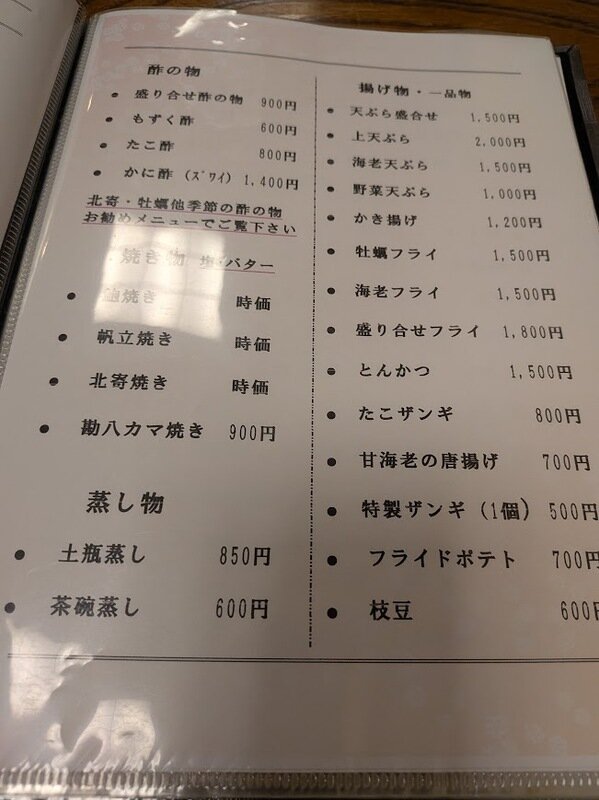 酢の物
● 盛り合せ酢の物 900円
● もずく酢 600円
● たこ酢 800円
● かに酢 (ｽﾞﾜｲ) 1,400円
北寄・牡蠣他季節の酢の物
お勧めメニューでご覧下さい
焼き物 塩・バター
● 焼き 時価
● 帆立焼き 時価
● 北寄焼き 時価
● 勘八カマ焼き 900円
蒸し物
● 土瓶蒸し 850円
● 茶碗蒸し 600円
揚げ物・一品物
● 天ぷら盛合せ 1,500円
● 上天ぷら 2,000円
● 海老天ぷら 1,500円
● 野菜天ぷら 1,000円
● かき揚げ 1,200円
● 牡蠣フライ 1,500円
● 海老フライ 1,500円
● 盛り合せフライ 1,800円
● とんかつ 1,500円
● たこザンギ 800円
● 甘海老の唐揚げ 700円
● 特製ザンギ (1個) 500円
● フライドポテト 700円
● 枝豆 600円